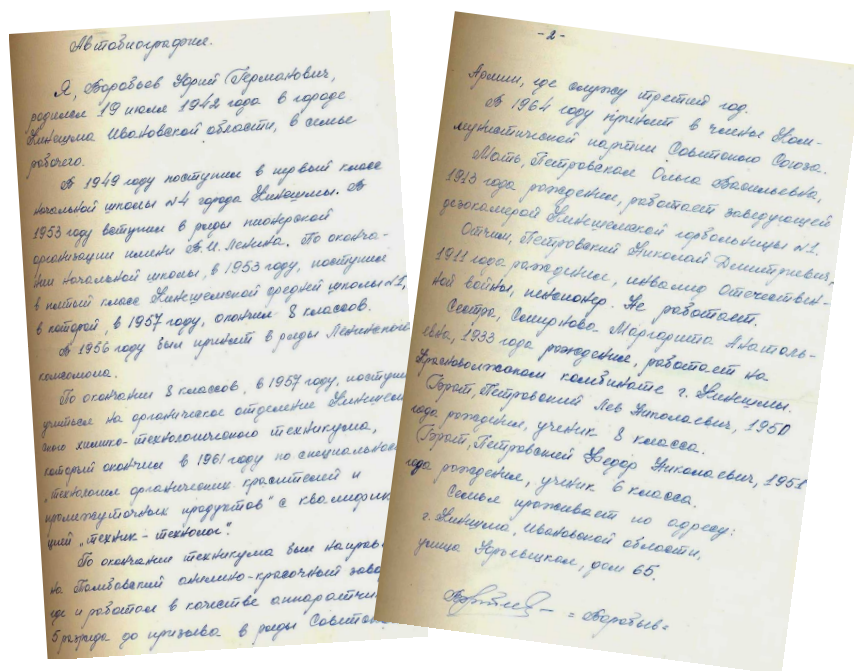 Автобиография.
Я, Воробьев Юрий Германович,
родился 19 июля 1942 года в городе
Кинешма Ивановской области, в семье
рабочего.
В 1949 году поступил в первый класс
начальной школы №4 города Кинешмы. В
1953 году вступил в ряды пионерской
организации имени В.И. Ленина. По оконча-
нии начальной школы, в 1953 году, поступил
в пятый класс Кинешемской средней школы №1,
в которой, в 1957 году, окончил 8 классов.
В 1956 году был принят в ряды Ленинского
комсомола.
По окончании 8 классов, в 1957 году, поступил
учиться на органическое отделение Кинешем
ского химико-технологического техникума,
который окончил в 1961 году по специальнос
„технология органических красителей и
промежуточных продуктов" с квалифик
цией „техник-технолог".
По окончании техникума был направ
на анилино-красочный заво
где и работал в качестве аппаратчи
5 разряда до призыва в ряды Советс
-2-
Армии, где служу третий год.
В 1964 году принят в члены Ком-
мунистической партии Советского Союза.
Мать, Петровская Ольга Васильевна,
1913 года рождения, работает заведующей
дезокамерой Кинешемской горбольницы №1.
Отчим, Петровский Николай Дмитриевич,
1911 года рождения, инвалид Отечествен-
ной войны, пенсионер. Не работает.
Сестра, Смирнова Маргарита Анатоль-
евна, 1933 года рождения, работает на
Красноволжском комбинате г. Кинешмы.
Брат, Петровский Лев Николаевич, 1950
года рождения, ученик 8 класса.
Брат, Петровский Федор Николаевич, 1951
года рождения, ученик 6 класса.
Семья проживает по адресу:
г. Кинешма, Ивановской области,
улица Юрьевецкая, дом 65.
= Воробьев =